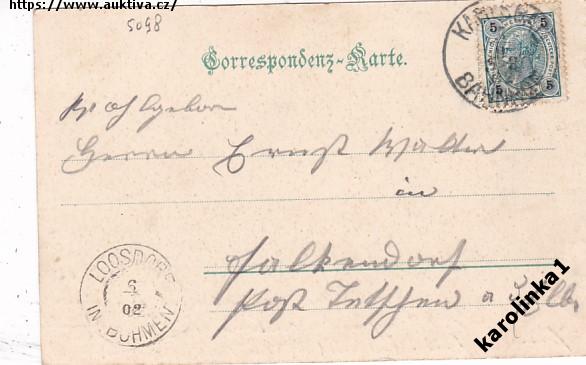 https://www.auktiva.cz/
5098
Correspondenz-Karte.
5 5
5 5
Herrn Ernst Walter
in
Falkendorf
Post Tetschen a Elbe
LOOSDORF
6
02
IN BÖHMEN
karolinka1